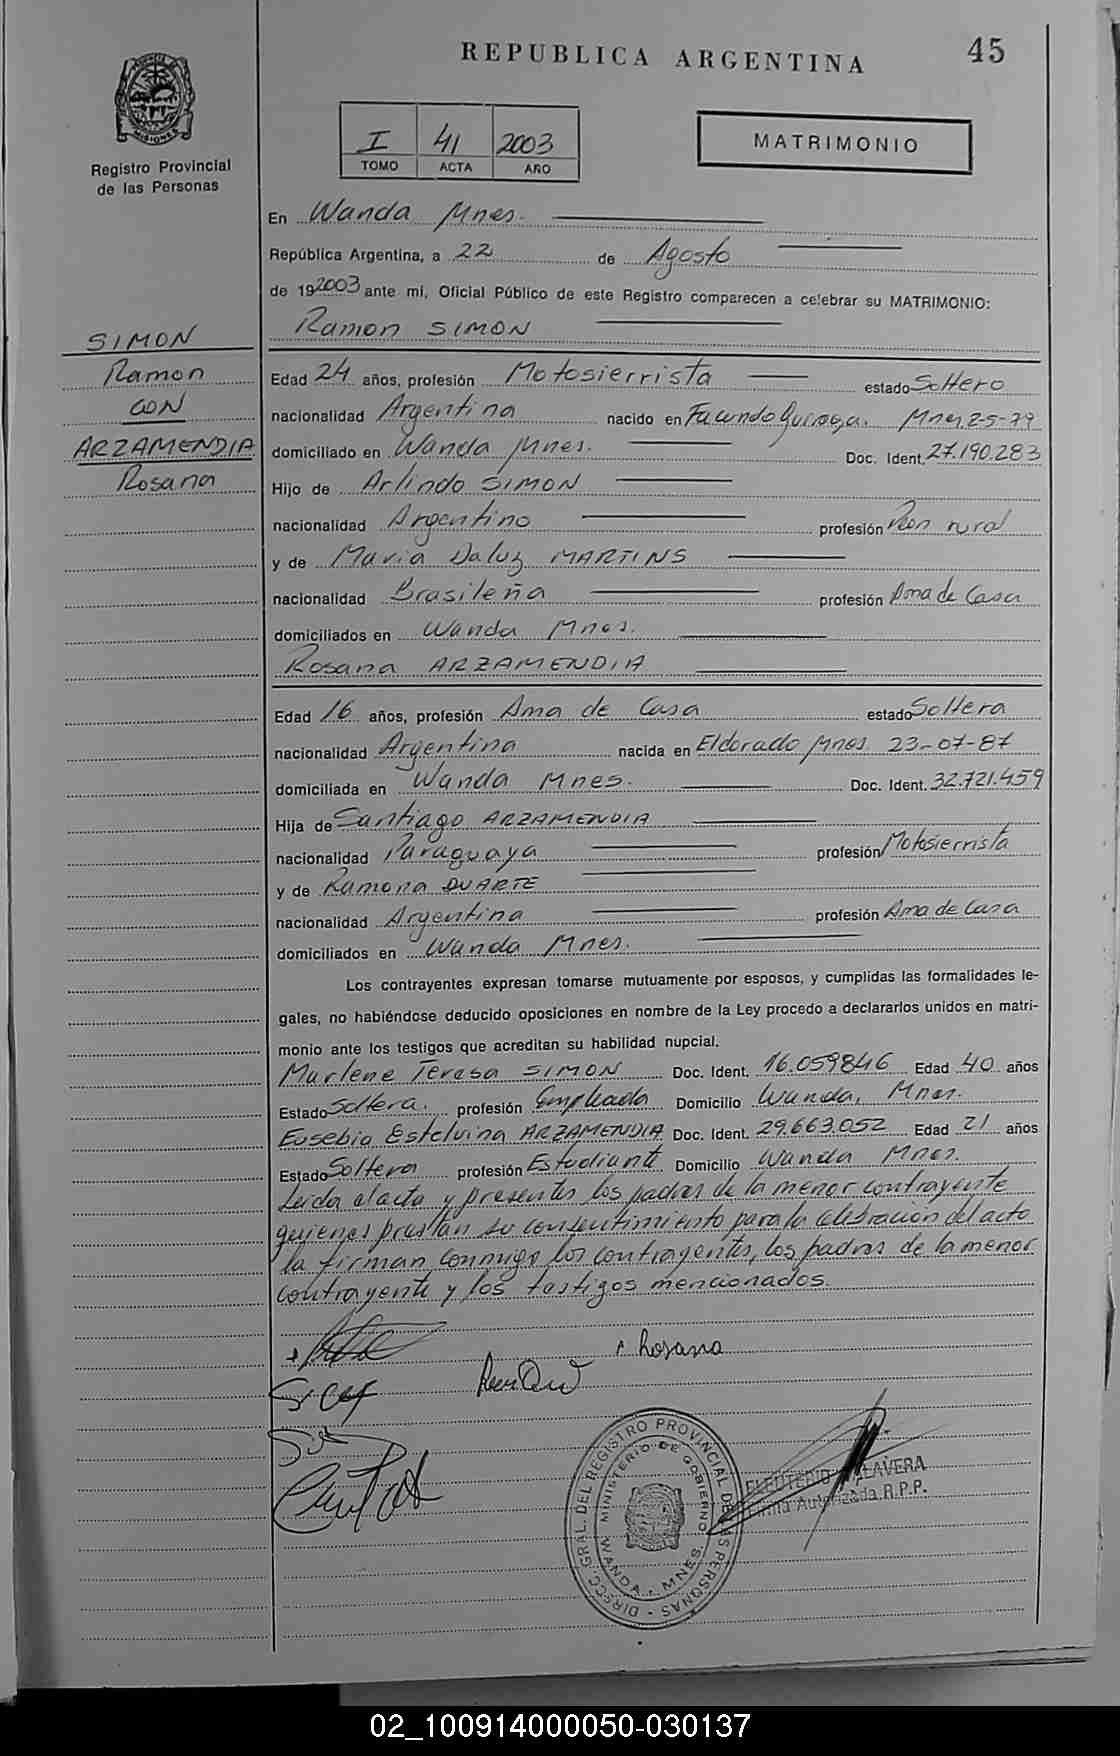 REPUBLICA ARGENTINA 45
MISIONES
Registro Provincial
de las Personas
I 41 2003
TOMO ACTA AÑO
MATRIMONIO
En Wanda Mnes.
República Argentina, a 22 de Agosto
de 192003 ante mi, Oficial Público de este Registro comparecen a celebrar su MATRIMONIO:
Ramon SIMON
SIMON
Ramon
CON
ARZAMENDIA
Rosana
Edad 24 años, profesión Motosierrista estado Soltero
nacionalidad Argentina nacido en Facundo Quiroga. Mnes, 2-5-79
domiciliado en Wanda Mnes. Doc. Ident. 27.190.283
Hijo de Arlindo SIMON
nacionalidad Argentino profesión Peon rural
y de Maria Daluz MARTINS
nacionalidad Brasileña profesión Ama de Casa
domiciliados en Wanda Mnes.
Rosana ARZAMENDIA
Edad 16 años, profesión Ama de Casa estado Soltera
nacionalidad Argentina nacida en Eldorado Mnes 23-07-87
domiciliada en Wanda Mnes. Doc. Ident. 32.721.459
Hija de Santiago ARZAMENDIA
nacionalidad Paraguaya profesión Motosierrista
y de Ramona DUARTE
nacionalidad Argentina profesión Ama de Casa
domiciliados en Wanda Mnes.
Los contrayentes expresan tomarse mutuamente por esposos, y cumplidas las formalidades le-
gales, no habiéndose deducido oposiciones en nombre de la Ley procedo a declararlos unidos en matri-
monio ante los testigos que acreditan su habilidad nupcial.
Marlene Teresa SIMON Doc. Ident. 16.059846 Edad 40 años
Estado Soltera. profesión Empleada Domicilio Wanda, Mnes.
Eusebia Estelvina ARZAMENDIA Doc. Ident. 29.663.052 Edad 21 años
Estado Soltera profesión Estudiante Domicilio Wanda Mnes.
Leida el acta y presentes los padres de la menor contrayente
quienes prestan su consentimiento para la celebración del acto
la firman conmigo los contrayentes, los padres de la menor
contrayente y los testigos mencionados.
Rosana
DIRECC. GRAL. DEL REGISTRO PROVINCIAL DE LAS PERSONAS
MINISTERIO DE GOBIERNO
WANDA - MNES.
ELEUTERIO TALAVERA
Firma Autorizada R.P.P.
02_100914000050-030137